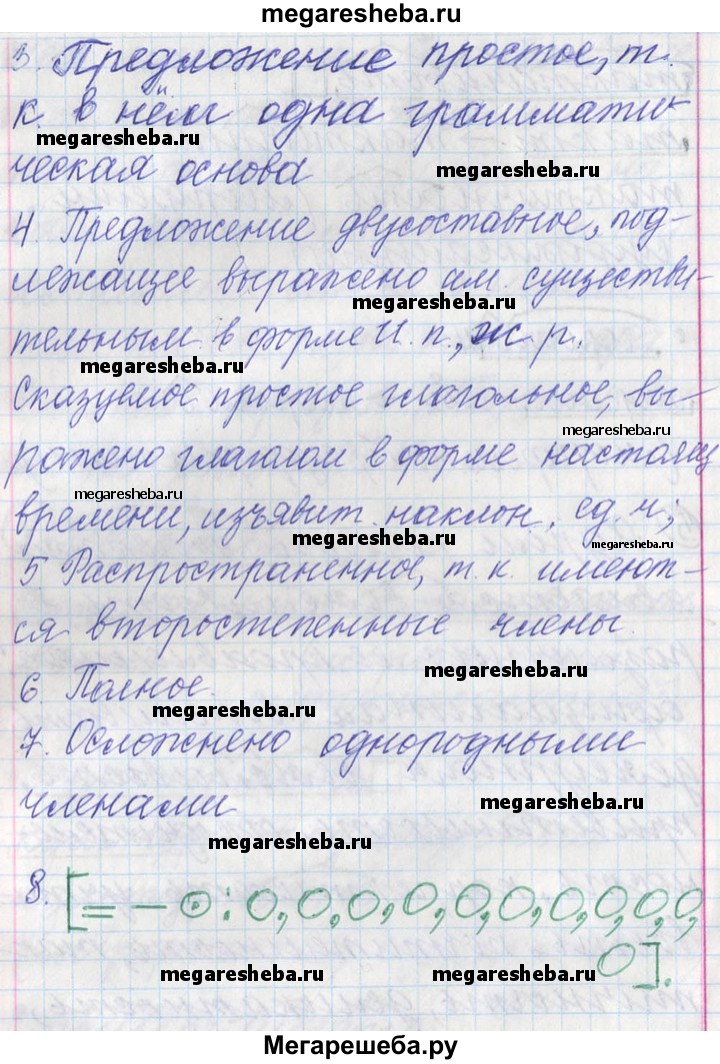 megaresheba.ru
3. Предложение простое, т.
к. в нём одна граммати-
megaresheba.ru
megaresheba.ru
ческая основа
4. Предложение двусоставное, под-
лежащее выражено им. существи-
megaresheba.ru
тельным в форме И. п., ж. р.
megaresheba.ru
Сказуемое простое глагольное, вы-
megaresheba.ru
ражено глаголом в форме настоящ
megaresheba.ru
времени, изъявит. наклон. ед. ч;
megaresheba.ru
megaresheba.ru
5 Распространенное, т. к. имеют-
ся второстепенные члены.
megaresheba.ru
6. Полное.
megaresheba.ru
7. Осложнено однородными
членами
megaresheba.ru
megaresheba.ru
8. [= — ⊙: O, O, O, O, O, O, O, O, O, O,
O].
megaresheba.ru
megaresheba.ru
Мегарешеба.ру